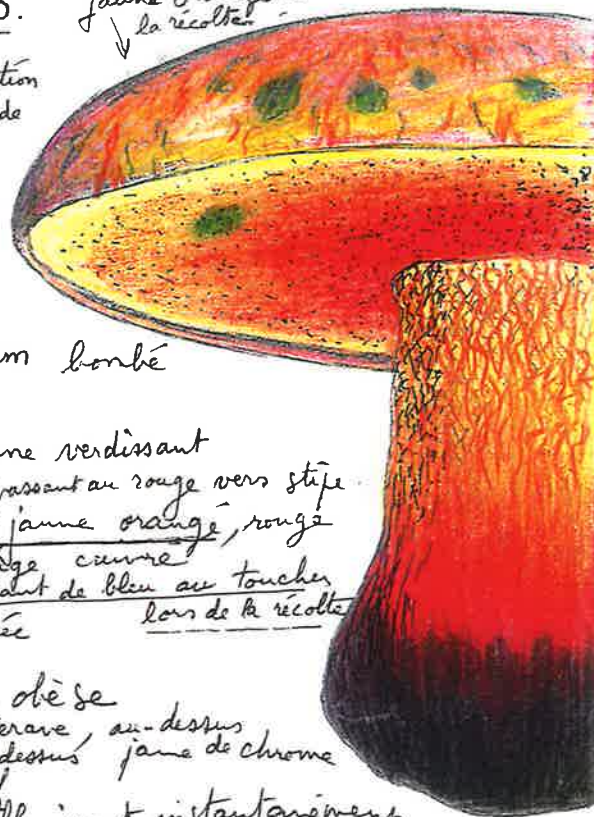 la récolte
tion
de
m bombé
ne verdissant
passant au rouge vers stipe
jaune orangé, rouge
ge cuivré
ant de bleu au toucher
lors de la récolte
ée
obèse
erave, au-dessus
dessus jaune de chrome
instantanément